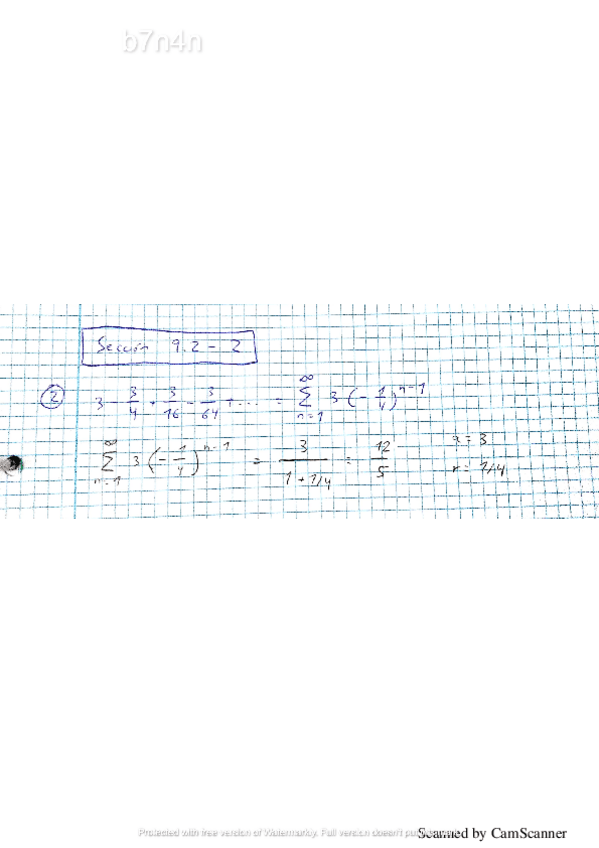 b7n4n
Sección 9.2 - 2
② 3 - 3/4 + 3/16 - 3/64 + ... = ∑_{n=1}^{∞} 3 (-1/4)^{n-1}
∑_{n=1}^{∞} 3 (-1/4)^{n-1} = 3/(1 + 1/4) = 12/5 a = 3
r = 1/4
Protected with free version of Watermarkly. Full version doesn't put
Scanned by CamScanner